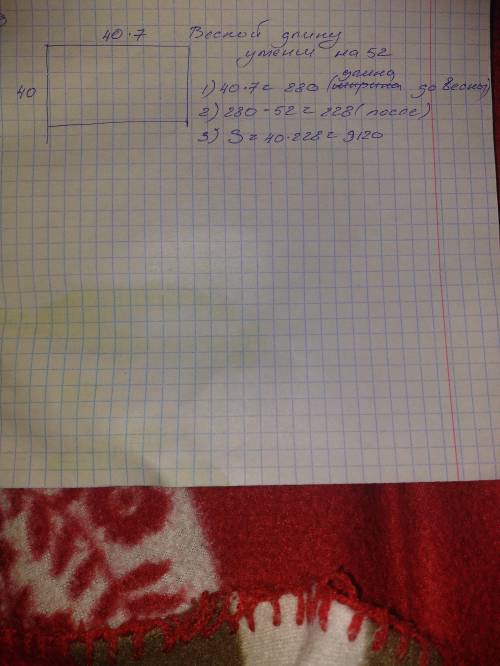 40·7 Весной длину
уменш на 52
40
1) 40·7= 280 (ширина длина до весны)
2) 280 - 52 = 228 ( после)
3) S = 40·228 = 9120